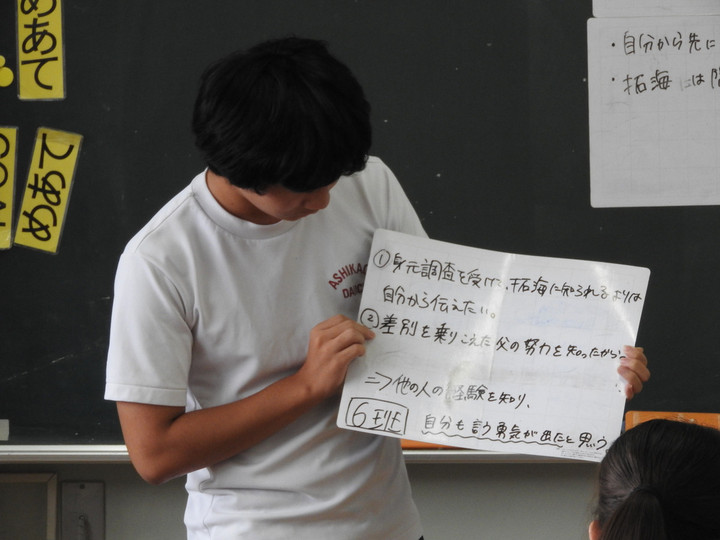 めあて
めあて
ASHIKAGA
・自分から先に
・拓海には
①身元調査を受けて、拓海に知られるよりは
自分から伝えたい。
②差別を乗りこえた父の努力を知ったから。
他の人の経験を知り、
6班
自分も言う勇気が出たと思う